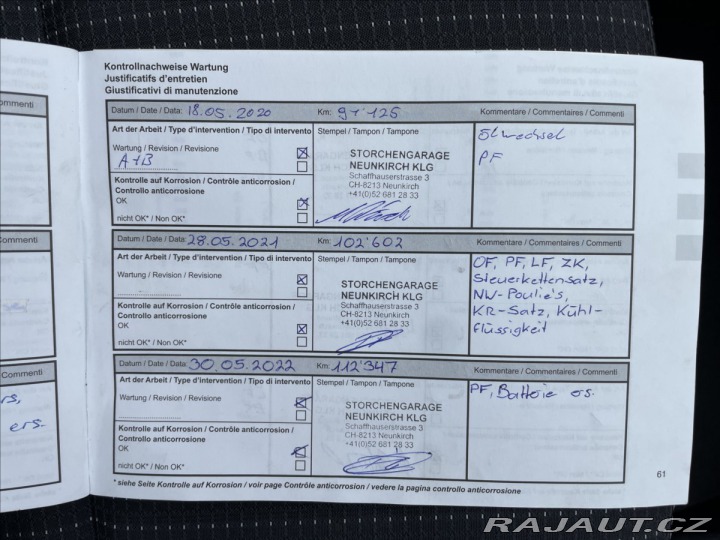 Kontrollnachweise Wartung
Justificatifs d'entretien
Giustificativi di manutenzione
Datum / Date / Data: 18.05.2020 Km: 91'125 Kommentare / Commentaires / Commenti
Art der Arbeit / Type d'intervention / Tipo di intervento Stempel / Tampon / Tampone
Wartung / Revision / Revisione
A+B
Kontrolle auf Korrosion / Contrôle anticorrosion /
Controllo anticorrosione
OK
nicht OK* / Non OK*
STORCHENGARAGE
NEUNKIRCH KLG
Schaffhauserstrasse 3
CH-8213 Neunkirch
+41(0)52 681 28 33
Ölwechsel
PF
Datum / Date / Data: 28.05.2021 Km: 102'602 Kommentare / Commentaires / Commenti
Art der Arbeit / Type d'intervention / Tipo di intervento Stempel / Tampon / Tampone
Wartung / Revision / Revisione
Kontrolle auf Korrosion / Contrôle anticorrosion /
Controllo anticorrosione
OK
nicht OK* / Non OK*
STORCHENGARAGE
NEUNKIRCH KLG
Schaffhauserstrasse 3
CH-8213 Neunkirch
+41(0)52 681 28 33
ÖF, PF, LF, ZK,
Steuerkettensatz,
NW-Poulie's,
KR-Satz, Kühl-
flüssigkeit
Datum / Date / Data: 30.05.2022 Km: 112'347 Kommentare / Commentaires / Commenti
Art der Arbeit / Type d'intervention / Tipo di intervento Stempel / Tampon / Tampone
Wartung / Revision / Revisione
Kontrolle auf Korrosion / Contrôle anticorrosion /
Controllo anticorrosione
OK
nicht OK* / Non OK*
STORCHENGARAGE
NEUNKIRCH KLG
Schaffhauserstrasse 3
CH-8213 Neunkirch
+41(0)52 681 28 33
PF, Batterie
* siehe Seite Kontrolle auf Korrosion / voir page Contrôle anticorrosion / vedere la pagina controllo anticorrosione
61
ommenti
Commenti
Commenti
rs,
ers.
RAJAUT.CZ